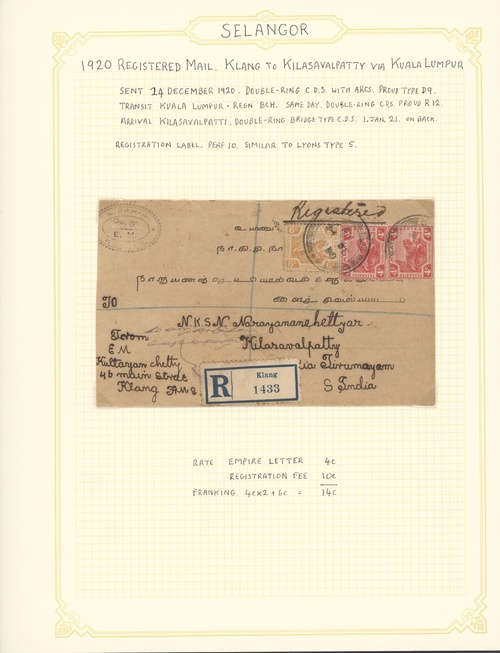 SELANGOR
1920 REGISTERED MAIL. KLANG TO KILASAVALPATTY VIA KUALA LUMPUR
SENT 14 DECEMBER 1920. DOUBLE-RING C.D.S. WITH ARCS. PROUD TYPE D9.
TRANSIT KUALA LUMPUR - REGN BCH. SAME DAY. DOUBLE-RING CDS. PROUD R12.
ARRIVAL KILASAVALPATTI. DOUBLE-RING BRIDGE TYPE C.D.S. 1. JAN. 21. ON BACK.
REGISTRATION LABEL. PERF 10. SIMILAR TO LYONS TYPE 5.
Registered
E. M.
TO
N.K.S.N. Narayananchettyar
Kilasavalpatty
via Turumayam
S India
From
E M
Kuttayan chetty
46 main Street
Klang F.M.S
R
Klang
1433
RATE EMPIRE LETTER 4c
REGISTRATION FEE 10c
FRANKING. 4c x 2 + 6c = 14c